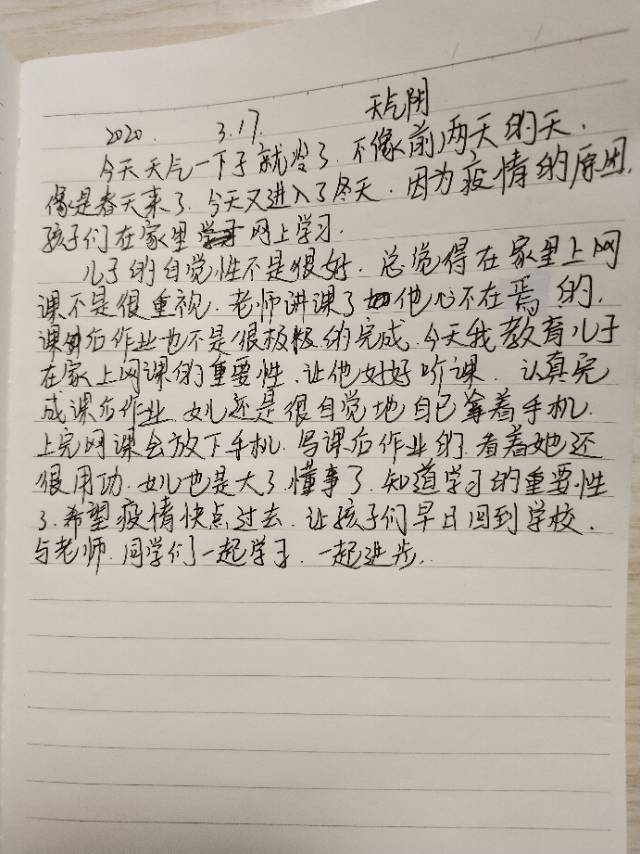 2020. 3.17. 天气阴
今天天气一下子就冷了. 不像前两天的天.
像是春天来了. 今天又进入了冬天. 因为疫情的原因.
孩子们在家里网上学习.
儿子的自觉性不是很好. 总觉得在家里上网
课不是很重视. 老师讲课了他心不在焉的.
课后作业也不是很积极的完成. 今天我教育儿子
在家上网课的重要性. 让他好好听课. 认真完
成课后作业. 女儿还是很自觉地自己拿着手机.
上完网课会放下手机. 写课后作业的. 看着她还
很用功. 女儿也是大了. 懂事了. 知道学习的重要性
了. 希望疫情快点过去. 让孩子们早日回到学校.
与老师. 同学们一起学习. 一起进步.